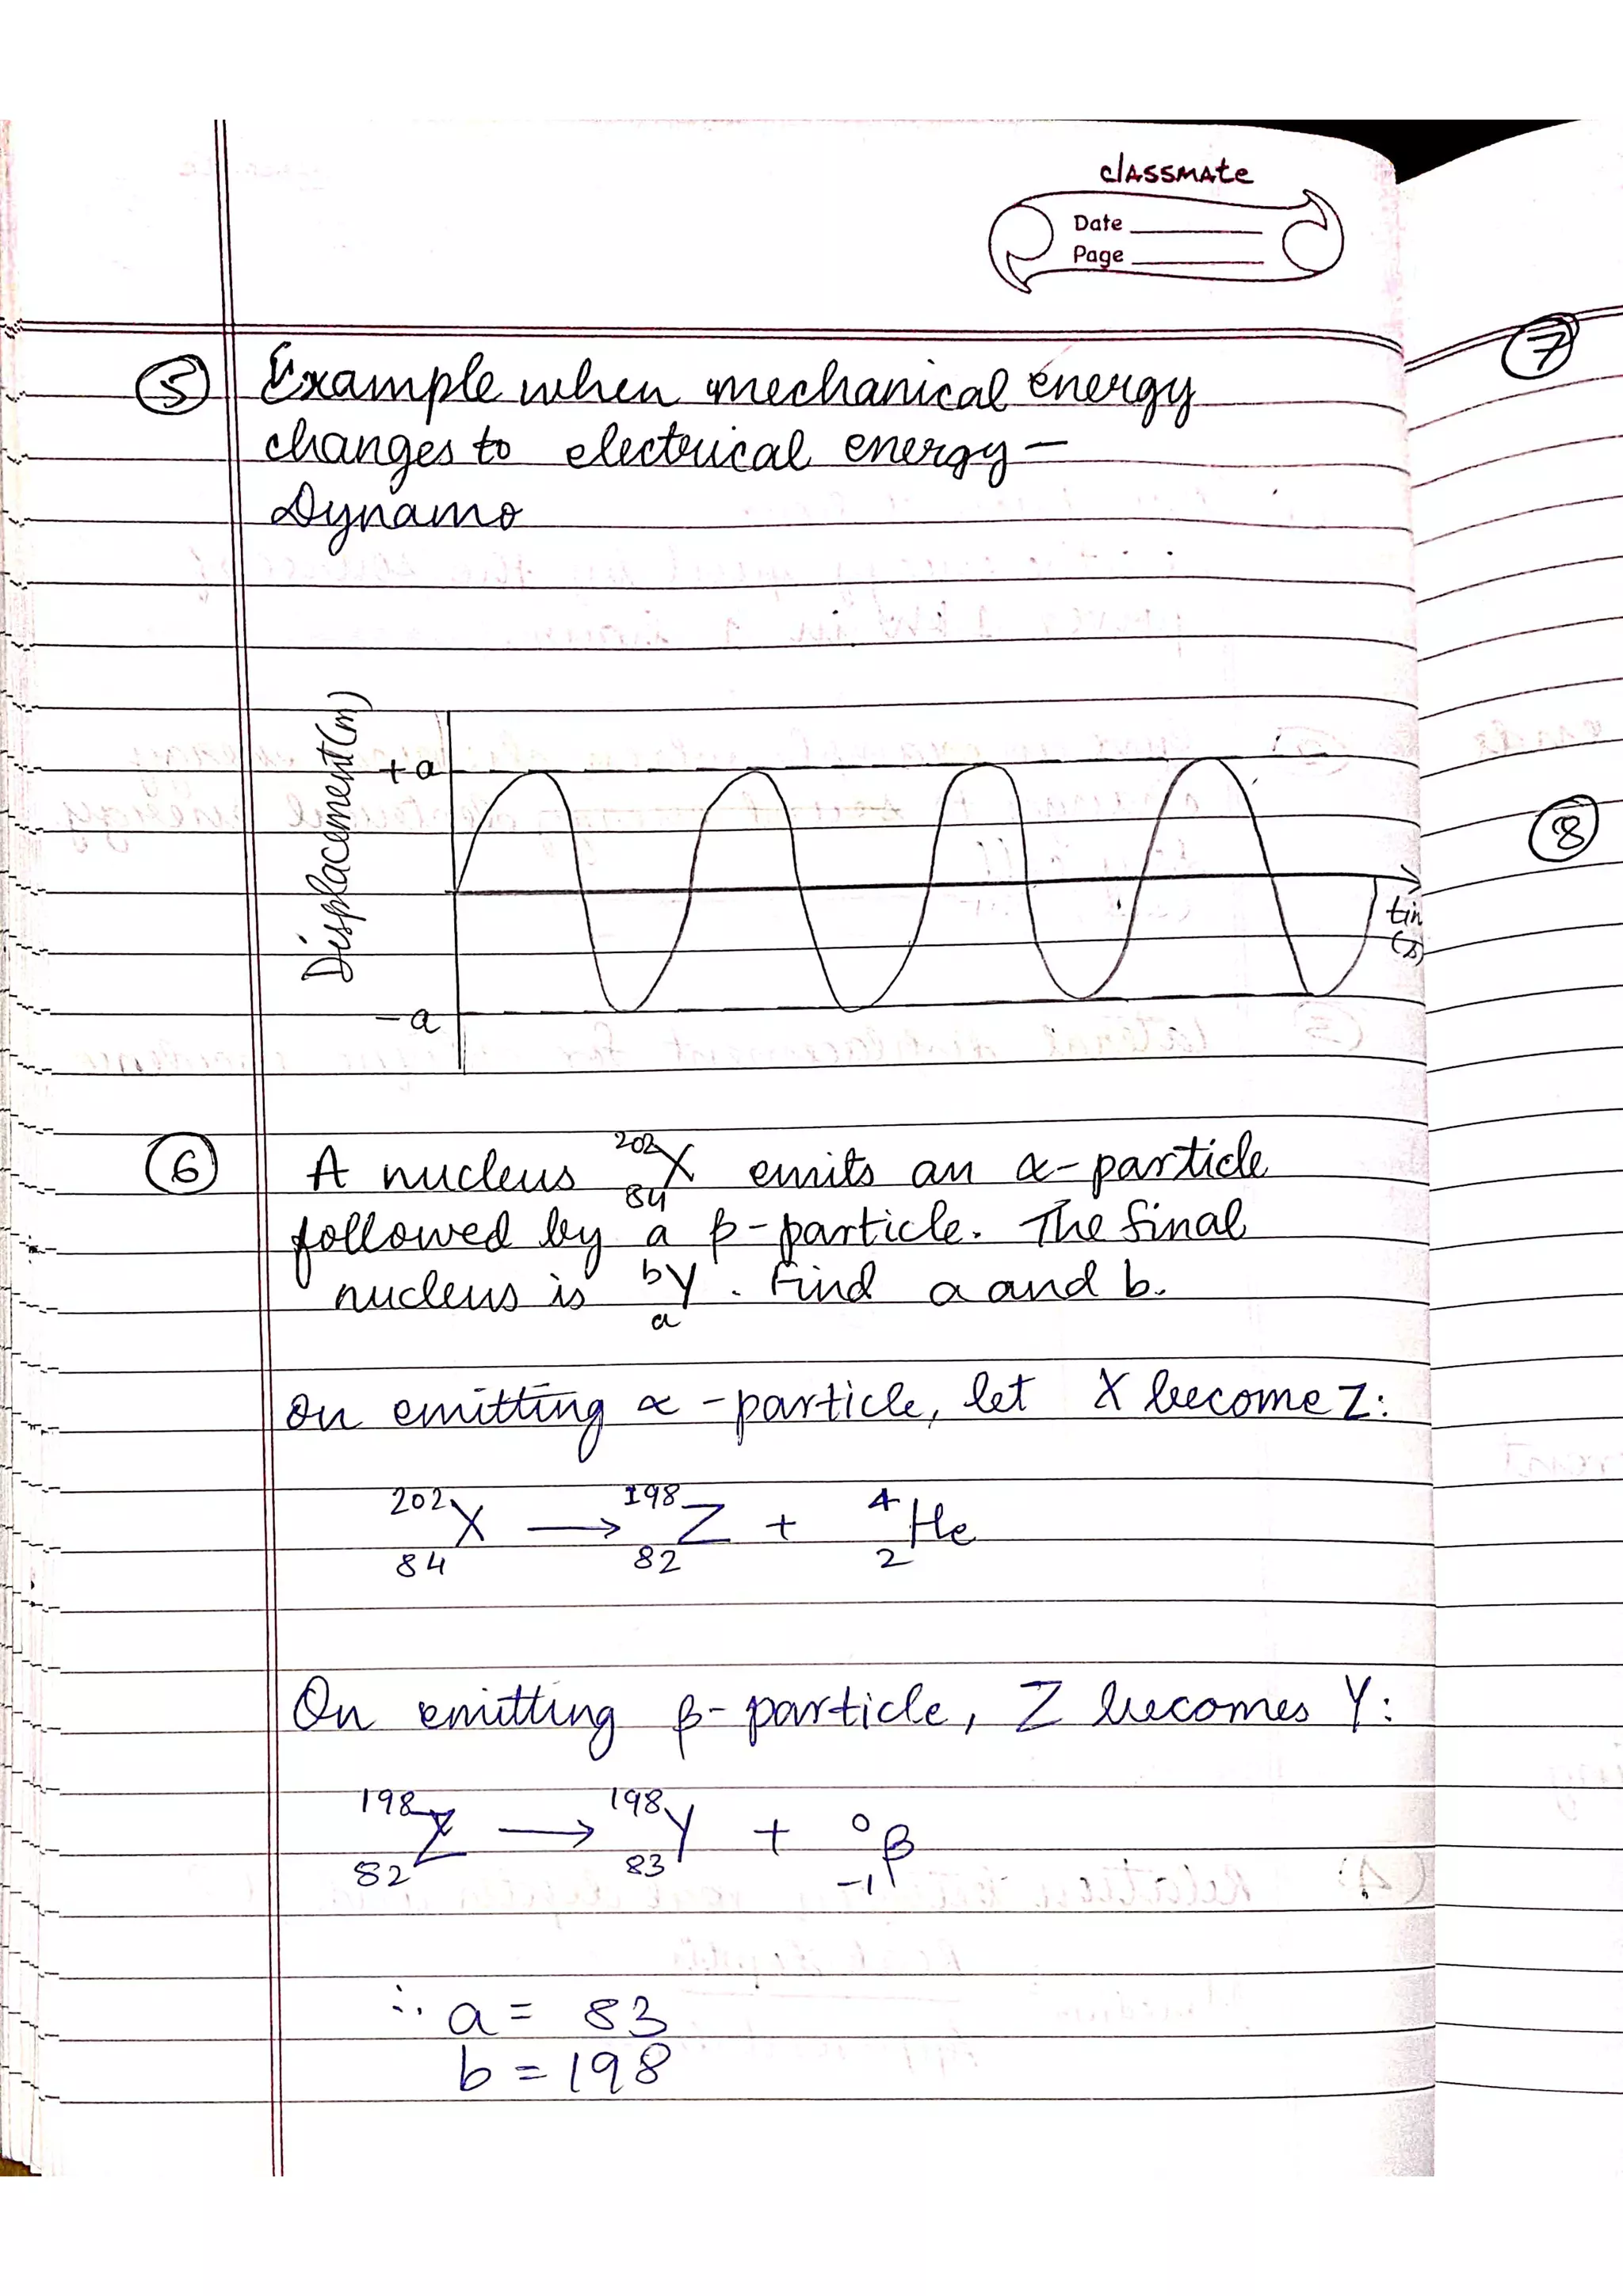 classmate
Date
Page
7
5 Example when mechanical energy
changes to electrical energy —
Dynamo
Displacement (m)
+a
8
tim
(s)
-a
6 A nucleus ²⁰²₈₄X emits an α-particle
followed by a β-particle. The final
nucleus is ᵇₐY. Find a and b.
On emitting α-particle, let X become Z:
²⁰²₈₄X ⟶ ¹⁹⁸₈₂Z + ⁴₂He
On emitting β-particle, Z becomes Y:
¹⁹⁸₈₂Z ⟶ ¹⁹⁸₈₃Y + ⁰₋₁β
∴ a = 83
b = 198